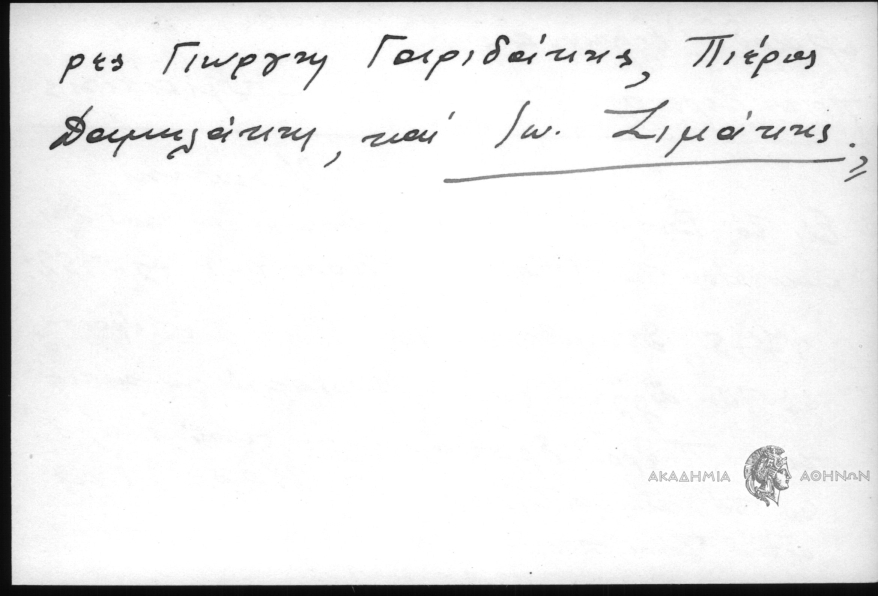 ρες Γιωργη Γαιριδάκης, Πιέρος
Δαμηλάκη, καί Ιω. Σιμάκης.,
ΑΚΑΔΗΜΙΑ ΑΘΗΝΩΝ